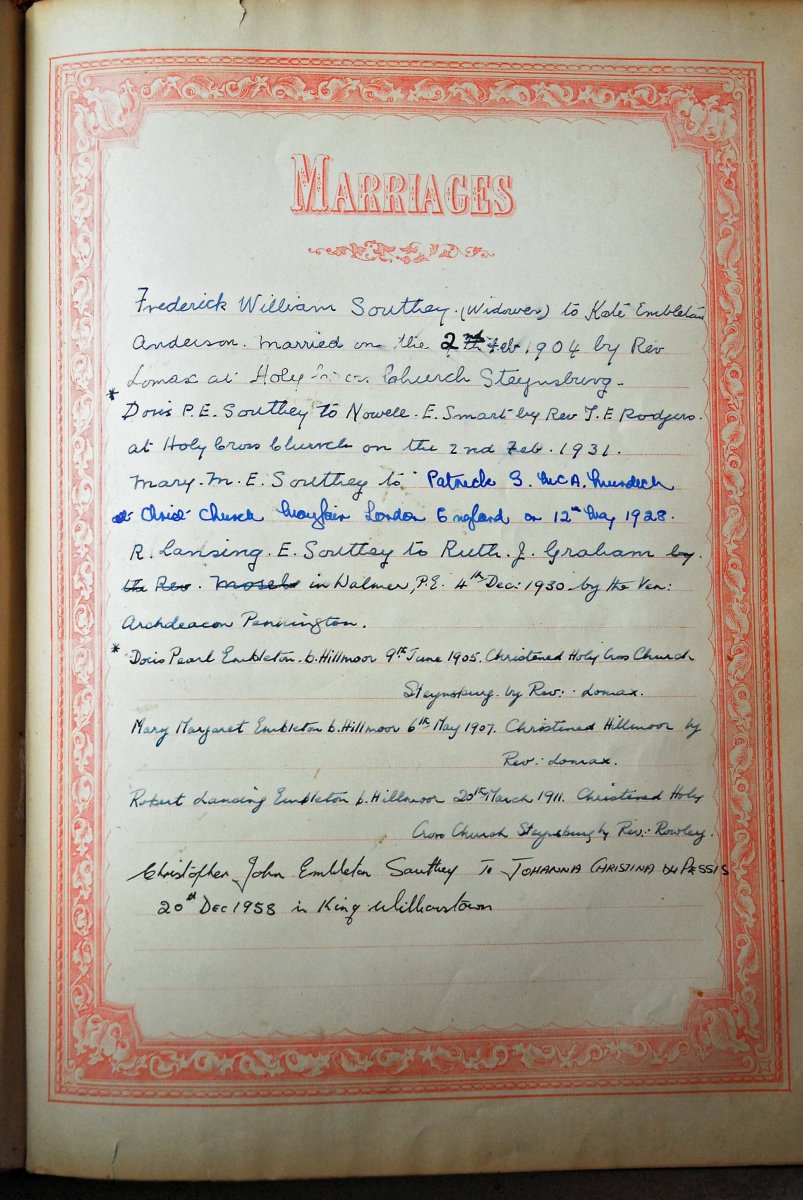 MARRIAGES
Frederick William Southey. (Widower) to Kate Embleton
Anderson. Married on the 2nd Feb. 1904 by Rev
Lomax at Holy Church Steynsburg.
* Doris P.E. Southey to Nowell. E. Smart by Rev T. E Rodgers.
at Holy Cross Church on the 2nd Feb. 1931.
Mary. M. E. Southey to Patrick S. McA. Murdoch
at Christ Church Mayfair London England on 12th May 1928.
R. Lansing. E. Southey to Ruth. J. Graham by
the Rev. Mosel in Walmer, P.E. 4th Dec: 1930 by the Ven:
Archdeacon Pennington.
* Doris Pearl Embleton. b. Hillmoor 9th June 1905. Christened Holy Cross Church
Steynsburg. by Rev: Lomax.
Mary Margaret Embleton b. Hillmoor 6th May 1907. Christened Hillmoor by
Rev: Lomax.
Robert Lansing Embleton b. Hillmoor 20th March 1911. Christened Holy
Cross Church Steynsburg by Rev: Rowley.
Christopher John Embleton Southey To JOHANNA CHRISTINA DU PESSIS
20th DEC 1958 in King Williamstown